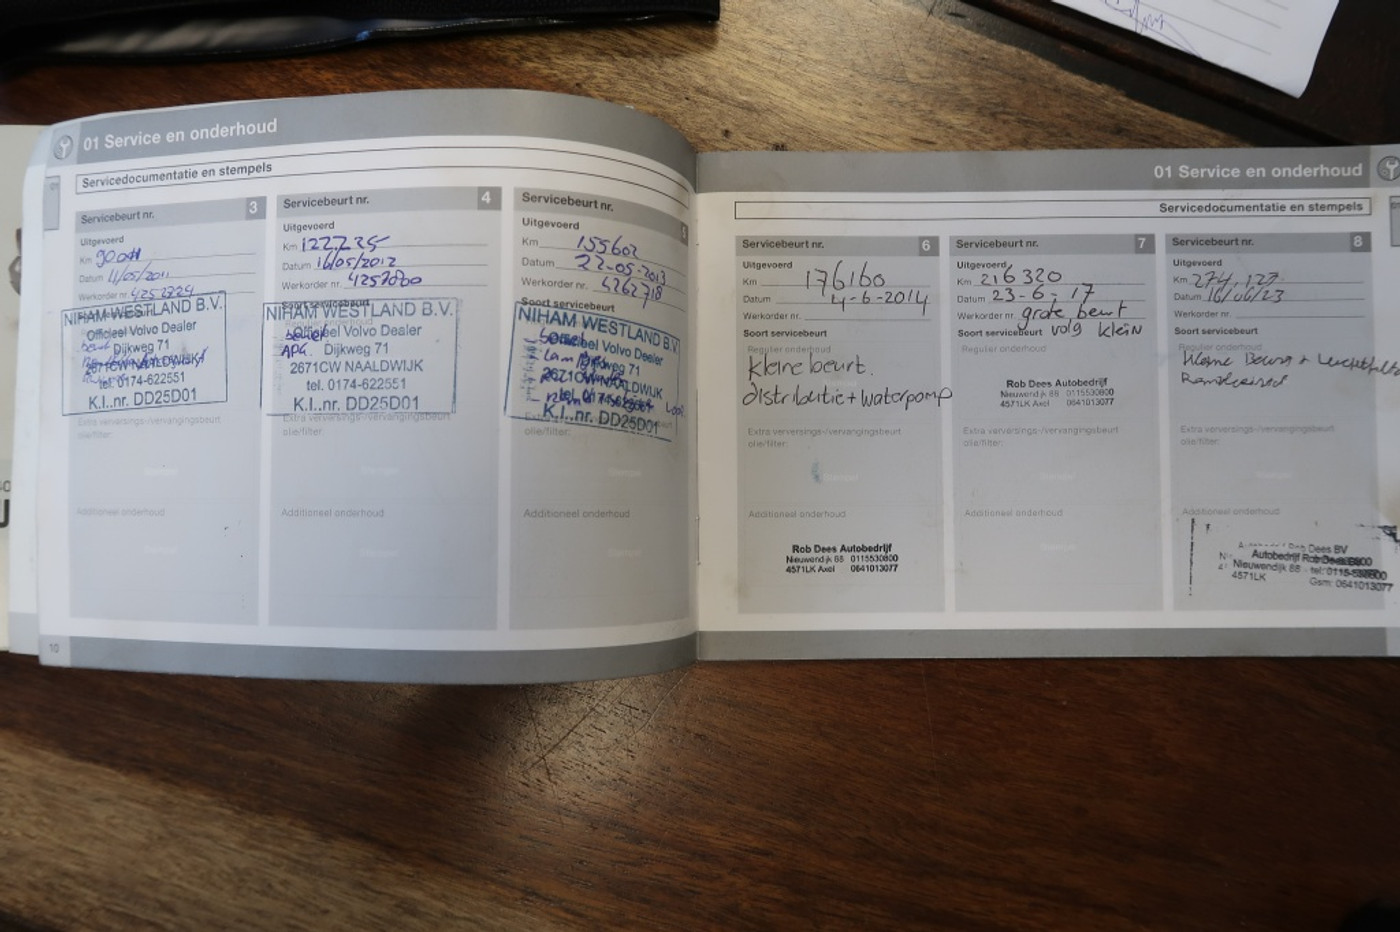 01 Service en onderhoud
Servicedocumentatie en stempels
Servicebeurt nr. 3
Uitgevoerd
Km
Datum 11/05/2011
Werkorder nr. 4252724
NIHAM WESTLAND B.V.
Officieel Volvo Dealer
Dijkweg 71
2671CW NAALDWIJK
tel. 0174-622551
K.I..nr. DD25D01
Extra verversings-/vervangingsbeurt
olie/filter:
Additioneel onderhoud
Servicebeurt nr. 4
Uitgevoerd
Km 122235
Datum 16/05/2012
Werkorder nr. 4257080
Soort servicebeurt
NIHAM WESTLAND B.V.
Officieel Volvo Dealer
APK Dijkweg 71
2671CW NAALDWIJK
tel. 0174-622551
K.I..nr. DD25D01
Extra verversings-/vervangingsbeurt
olie/filter:
Additioneel onderhoud
Servicebeurt nr. 5
Uitgevoerd
Km 155602
Datum 22-05-2013
Werkorder nr. 4262718
Soort servicebeurt
NIHAM WESTLAND B.V.
Officieel Volvo Dealer
Dijkweg 71
2671CW NAALDWIJK
K.I..nr. DD25D01
olie/filter:
Additioneel onderhoud
10
01 Service en onderhoud
Servicedocumentatie en stempels
Servicebeurt nr. 6
Uitgevoerd
Km 176160
Datum 4-6-2014
Werkorder nr.
Soort servicebeurt
Regulier onderhoud
kleine beurt.
distributie + waterpomp
Extra verversings-/vervangingsbeurt
olie/filter:
Stempel
Additioneel onderhoud
Rob Dees Autobedrijf
Nieuwendijk 88 0115530800
4571LK Axel 0641013077
Servicebeurt nr. 7
Uitgevoerd
Km 216320
Datum 23-6-17
Werkorder nr. grote beurt
Soort servicebeurt volg klein
Regulier onderhoud
Rob Dees Autobedrijf
Nieuwendijk 88 0115530800
4571LK Axel 0641013077
Extra verversings-/vervangingsbeurt
olie/filter:
Additioneel onderhoud
Servicebeurt nr. 8
Uitgevoerd
Km 274.127
Datum 16/06/23
Werkorder nr.
Soort servicebeurt
Regulier onderhoud
kleine Beurt +
Extra verversings-/vervangingsbeurt
olie/filter:
Additioneel onderhoud
Rob Dees BV
Autobedrijf
Nieuwendijk 88 - tel: 0115-530800
4571LK Gsm: 0641013077